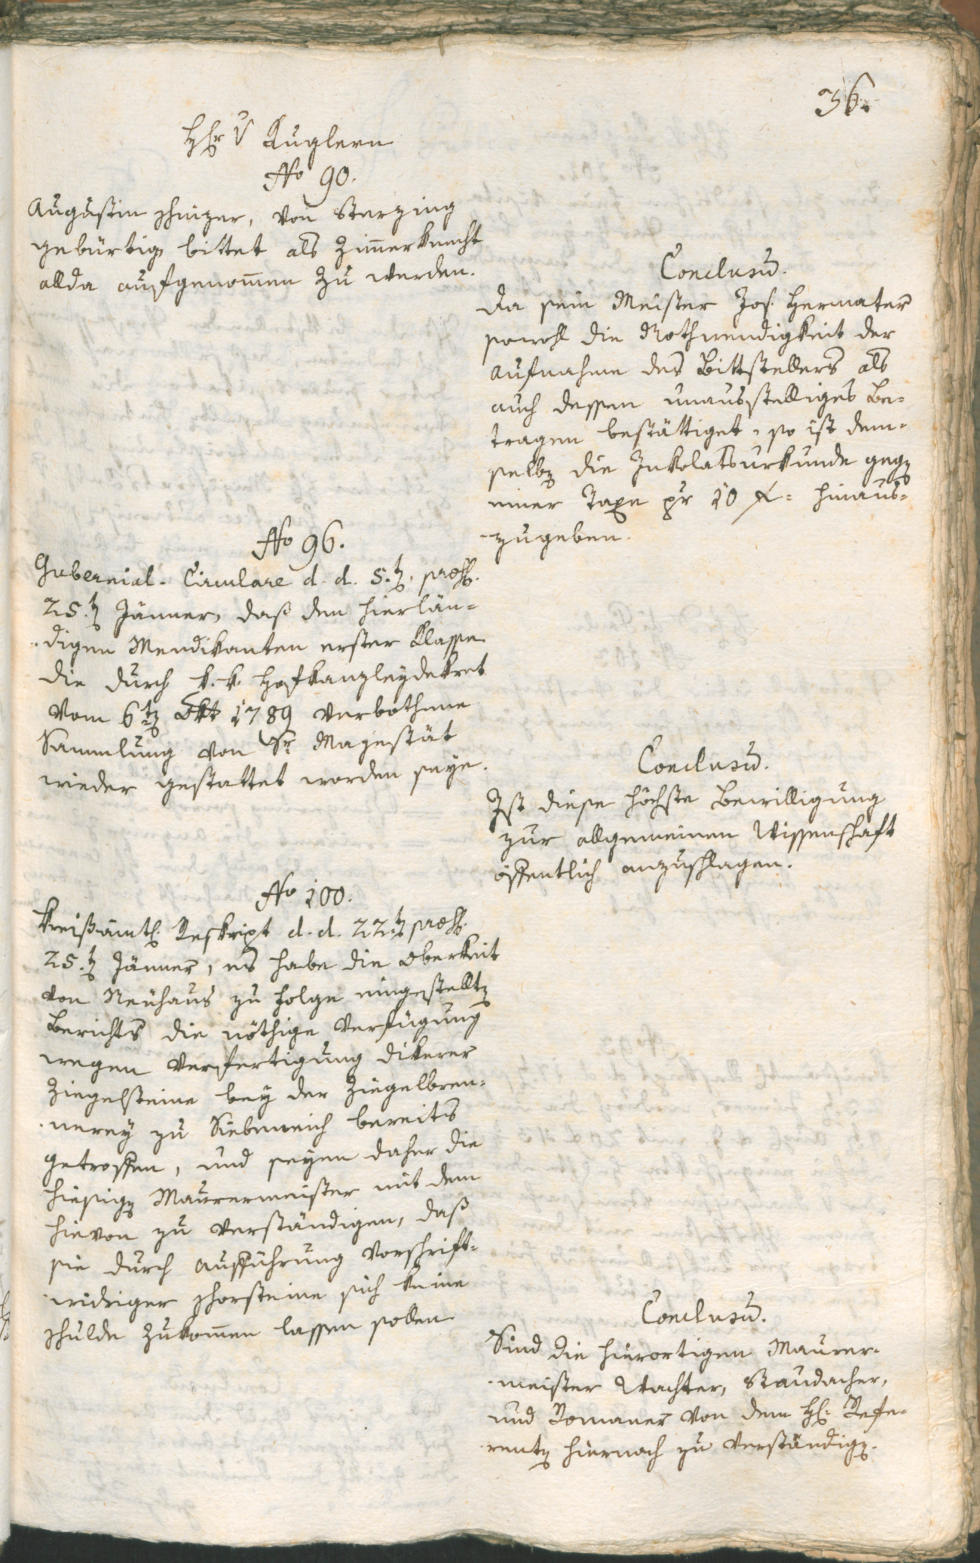 36.
Hhr v Kuglern
No 90.
Augustin Schnizer, von Sterzing
gebürtig bittet als Zim̅erknecht
allda aufgenom̅en zu werden.
Conclusū.
Da sein Meister Jos. Hermater
sowohl die Nothwendigkeit der
Aufnahme des Bittstellers als
auch dessen unausstelliges Be=
tragen bestättiget, so ist dem=
selbn die Inkolatsurkunde gegn
einer Taxe pr 10 f = hinaus=
zugeben.
No 96.
Gubernial-Circulare d. d. 5.tn, praes.
25.tn Jänner, daß den hierlän=
digen Mendikanten erster Klasse
die durch k. k. Hofkanzleydekret
vom 6tn Okt 1789 verbothene
Sammlung von Sr Magestät
wieder gestattet worden seye.
Conclusū.
Ist diese höchste Bewilligung
zur allgemeinen Wissenschaft
öffentlich anzuschlagen.
No 100.
Kreißämtl. Reskript d. d. 22.tn praes.
25.tn Jänner, es habe die Oberkeit
von Neuhaus zu Folge eingestelltn
Berichts die nöthige Verfügung
wegen Verfertigung dikerer
Ziegelsteine bey der Ziegelbren=
nerey zu Siebeneich bereits
getroffen, und seyen daher die
hiesign Maurermeister mit dem
hievon zu verständigen, daß
sie durch Aufführung vorschrift=
widriger Schorsteine sich keine
Schulde zukom̅en lassen sollen
Conclusū.
Sind die hierortigen Maurer=
meister Wachter, Staudacher,
und Romaner von dem Hh. Refe=
rentn hiernach zu verständign.